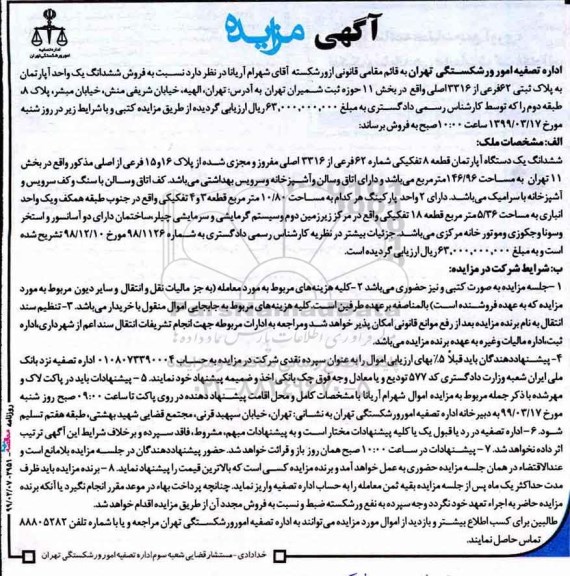 آگهی مزایده
اداره تصفیه
امور ورشکستگی تهران
اداره تصفیه امور ورشکستگی تهران به قائم مقامی قانونی از ورشکسته آقای شهرام آریانا در نظر دارد نسبت به فروش ششدانگ یک واحد آپارتمان
به پلاک ثبتی ۶۲ فرعی از ۳۳۱۶ اصلی واقع در بخش ۱۱ حوزه ثبت شمیران تهران به آدرس: تهران، الهیه، خیابان شریفی منش، خیابان مبشر، پلاک ۸،
طبقه دوم را که توسط کارشناس رسمی دادگستری به مبلغ ۶۳,۰۰۰,۰۰۰,۰۰۰ ریال ارزیابی گردیده از طریق مزایده کتبی و با شرایط زیر در روز شنبه
مورخ ۱۳۹۹/۰۳/۱۷ ساعت ۱۰:۰۰ صبح به فروش برساند:
الف: مشخصات ملک:
ششدانگ یک دستگاه آپارتمان قطعه ۸ تفکیکی شماره ۶۲ فرعی از ۳۳۱۶ اصلی مفروز و مجزی شده از پلاک ۱۶ و ۱۵ فرعی از اصلی مذکور واقع در بخش
۱۱ تهران به مساحت ۱۴۶/۹۶ متر مربع می‌باشد و دارای اتاق و سالن و آشپزخانه و سرویس بهداشتی می‌باشد. کف اتاق و سالن با سنگ و کف سرویس و
آشپزخانه با سرامیک می‌باشد. دارای ۲ واحد پارکینگ هر کدام به مساحت ۱۰/۸۰ متر مربع قطعه ۳ و ۴ تفکیکی واقع در جنوب طبقه همکف و یک واحد
انباری به مساحت ۵/۳۶ متر مربع قطعه ۱۸ تفکیکی واقع در مرکز زیرزمین دوم و سیستم گرمایشی و سرمایشی چیلر، ساختمان دارای دو آسانسور و استخر
و سونا و جکوزی و موتور خانه مرکزی می‌باشد. جزئیات بیشتر در نظریه کارشناس رسمی دادگستری به شماره ۹۸/۱۱۲۶ مورخ ۹۸/۱۲/۱۰ تشریح شده
است و به مبلغ ۶۳,۰۰۰,۰۰۰,۰۰۰ ریال ارزیابی گردیده است.
ب: شرایط شرکت در مزایده:
۱ - جلسه مزایده به صورت کتبی و نیز حضوری می‌باشد ۲ - کلیه هزینه‌های مربوط به مورد معامله (به جز مالیات نقل و انتقال و سایر دیون مربوط به مورد
مزایده که به عهده فروشنده است) بالمناصفه بر عهده طرفین است. کلیه هزینه‌های مربوط به جابجایی اموال منقول با خریدار می‌باشد. ۳ - تنظیم سند
انتقال به نام برنده مزایده بعد از رفع موانع قانونی امکان پذیر خواهد شد و مراجعه به ادارات مربوطه جهت انجام تشریفات انتقال سند اعم از شهرداری، اداره
ثبت، اداره مالیات و غیره به عهده برنده مزایده می‌باشد.
۴ - پیشنهاددهندگان باید قبلاً ۵٪ بهای ارزیابی اموال را به عنوان سپرده نقدی شرکت در مزایده به حساب ۰۱۰۸۰۷۳۳۹۰۰۰۴ اداره تصفیه نزد بانک
ملی ایران شعبه وزارت دادگستری کد ۵۷۷ تودیع و یا معادل وجه فوق چک بانکی اخذ و ضمیمه پیشنهاد خود نمایند. ۵ - پیشنهادات باید در پاکت لاک و
مهر شده با ذکر جمله مربوط به مزایده اموال شهرام آریانا با مشخصات کامل و محل اقامت پیشنهاددهنده در روی پاکت تا ساعت ۰۹:۰۰ صبح روز شنبه
مورخ ۹۹/۰۳/۱۷ به دبیرخانه اداره تصفیه امور ورشکستگی تهران به نشانی: تهران، خیابان سپهبد قرنی، مجتمع قضایی شهید بهشتی، طبقه هفتم تسلیم
شود. ۶ - اداره تصفیه در رد یا قبول یک یا کلیه پیشنهادات مختار است و به پیشنهادات مبهم، مشروط، فاقد سپرده و بر خلاف شرایط این آگهی ترتیب
اثر داده نخواهد شد. ۷ - پیشنهادات در ساعت ۱۰:۰۰ صبح همان روز باز و قرائت خواهد شد. حضور پیشنهاددهندگان در جلسه مزایده بلامانع است و
عندالاقتضاء در همان جلسه مزایده حضوری به عمل خواهد آمد و برنده مزایده کسی است که بالاترین قیمت را پیشنهاد نماید. ۸ - برنده مزایده باید ظرف
مدت حداکثر یک ماه پس از جلسه مزایده بقیه ثمن معامله را به حساب اداره تصفیه واریز نماید. چنانچه پرداخت بهاء در موعد مقرر انجام نگیرد یا آنکه برنده
مزایده حاضر به اجراء تعهد خود نگردد وجه سپرده به نفع ورشکسته ضبط و نسبت به فروش مجدد آن از طریق مزایده اقدام خواهد شد.
طالبین برای کسب اطلاع بیشتر و بازدید از اموال مورد مزایده می‌توانند به اداره تصفیه امور ورشکستگی تهران مراجعه و یا با شماره تلفن ۸۸۸۰۵۲۸۲
تماس حاصل نمایند.
خدادادی - مستشار قضایی شعبه سوم اداره تصفیه امور ورشکستگی تهران